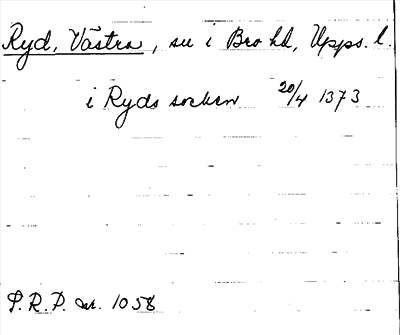 Ryd, Västra, su i Bro hd, Upps. l.
i Ryds socken 20/4 1373
S.R.P. nr. 1058